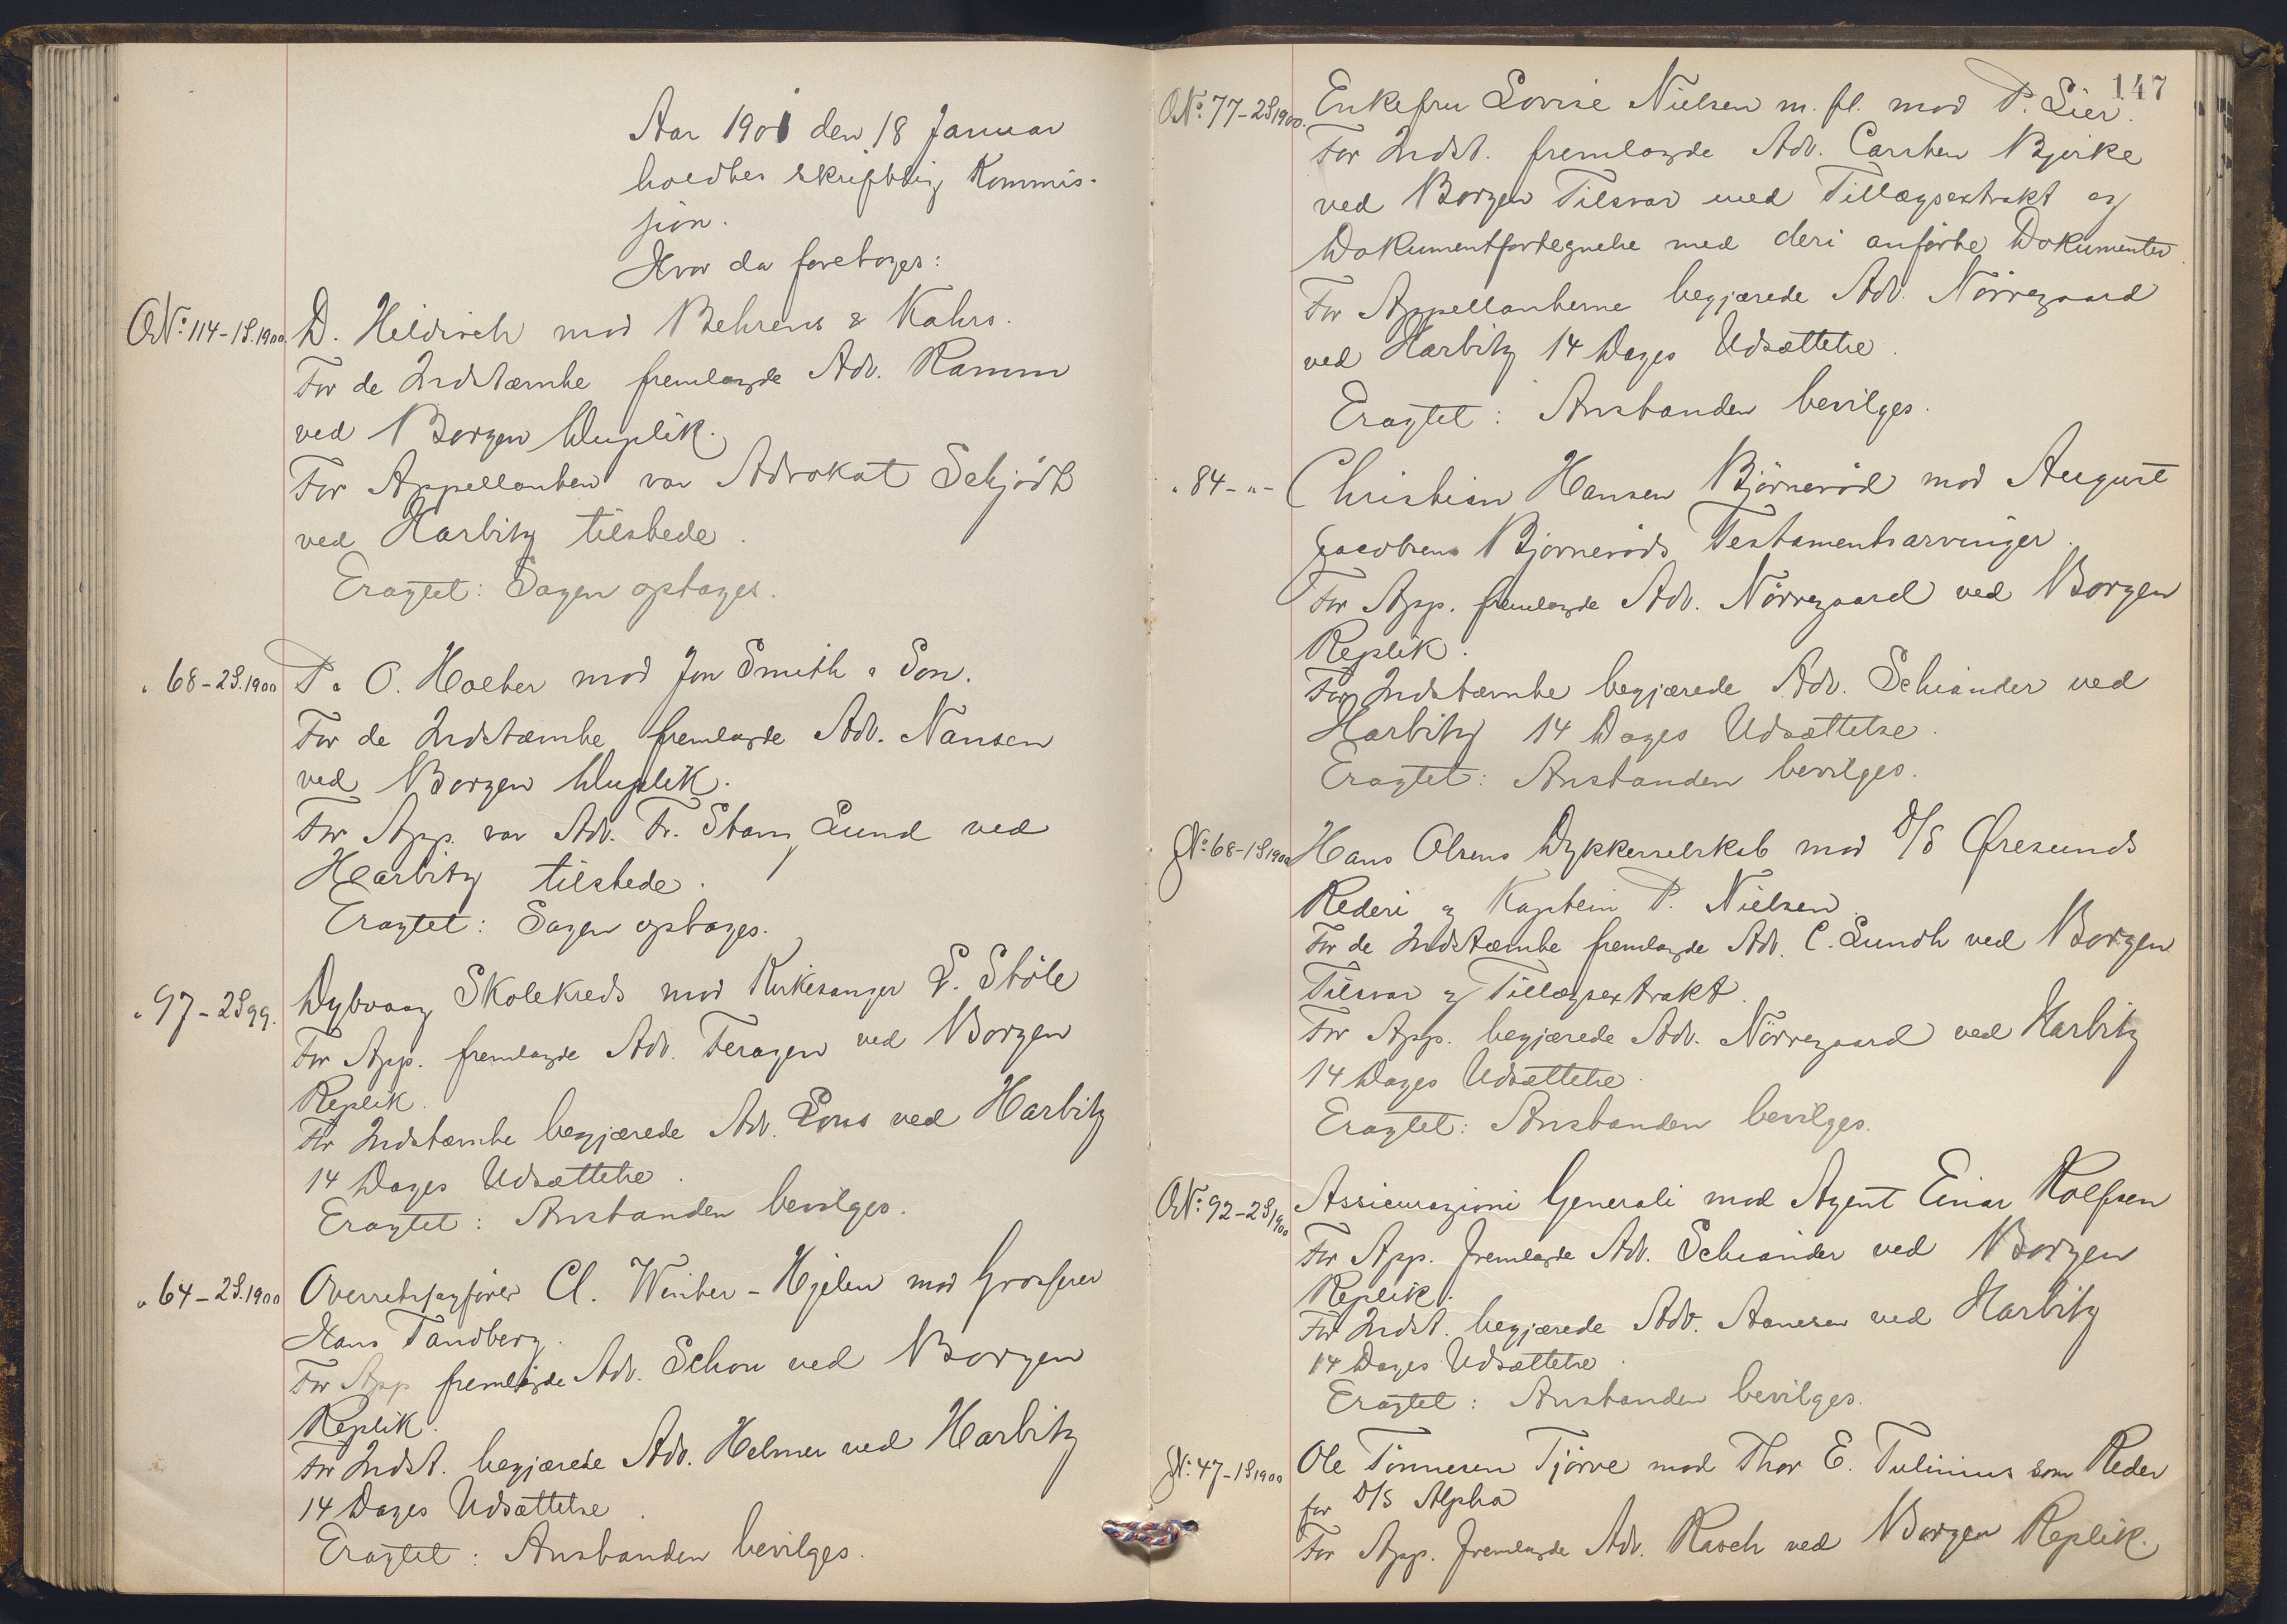 Aar 1901 den 18 Januar
holdtes skriftlig Kommis-
sion.
Hvor da foretoges:
ONo. 114-1S.1900. D. Heldisch mod Behrens & Kahrs.
For de Indstævnte fremlagde Adv. Ramm
ved Borgen Duplik.
For Appellanten var Advokat Schjødt
ved Harbitz tilstede.
Eragtet: Sagen optages.
" 68-2S.1900 P. a O. Holter mod Jon Smith a Son.
For de Indstævnte fremlagde Adv. Nansen
ved Borgen Duplik.
For App. var Adv. Fr. Stang Lund ved
Harbitz tilstede.
Eragtet: Sagen optages.
" 97-2S99. Dybvaag Skolekreds mod Kirkesanger L. Støle
For App. fremlagde Adv. Feragen ved Borgen
Replik.
For Indstævnte begjærede Adv. Lous ved Harbitz
14 Dages Udsættelse.
Eragtet: Anstanden bevilges.
" 64-2S.1900 Overretssagfører Cl. Winter-Hjelm mod Grosserer
Hans Tandberg.
For App fremlagde Adv. Schou ved Borgen
Replik.
For Indst. begjærede Adv. Helmer ved Harbitz
14 Dages Udsættelse.
Eragtet: Anstanden bevilges.
147
ONo. 77-2S1900. Enkefru Lovise Nielsen m. fl. mod P. Lier.
For Indst. fremlagde Adv. Carsten Bjerke
ved Borgen Tilsvar med Tillægsextrakt og
Dokumentfortegnelse med deri anførte Dokumenter.
For Appellanterne begjærede Adv. Nörregaard
ved Harbitz 14 Dages Udsættelse.
Eragtet: Anstanden bevilges.
" 84-"- Christian Hansen Björneröd mod August
Jacobsens Björneröds Testamentsarvinger.
For App. fremlagde Adv. Nörregaard ved Borgen
Replik.
For Indstævnte begjærede Adv. Schiander ved
Harbitz 14 Dages Udsættelse.
Eragtet: Anstanden bevilges.
JNo. 68-1S1900 Hans Olsens Dykkerselskab mod D/S Øresunds
Rederi og Kaptein P. Nielsen.
For de Indstævnte fremlagde Adv. C. Lundh ved Borgen
Tilsvar og Tillægsextrakt.
For App. begjærede Adv. Nörregaard ved Harbitz
14 Dages Udsættelse.
Eragtet: Anstanden bevilges.
ONo. 92-2S1900 Assicurazioni Generali mod Agent Einar Rolfsen
For App. fremlagde Adv. Schiander ved Borgen
Replik.
For Indst. begjærede Adv. Aanesen ved Harbitz
14 Dages Udsættelse.
Eragtet: Anstanden bevilges.
JNo. 47-1S1900 Ole Tönnesen Tjörve mod Thor E. Tulinius som Reder
for D/S Alpha
For App. fremlagde Adv. Rasch ved Borgen Replik.